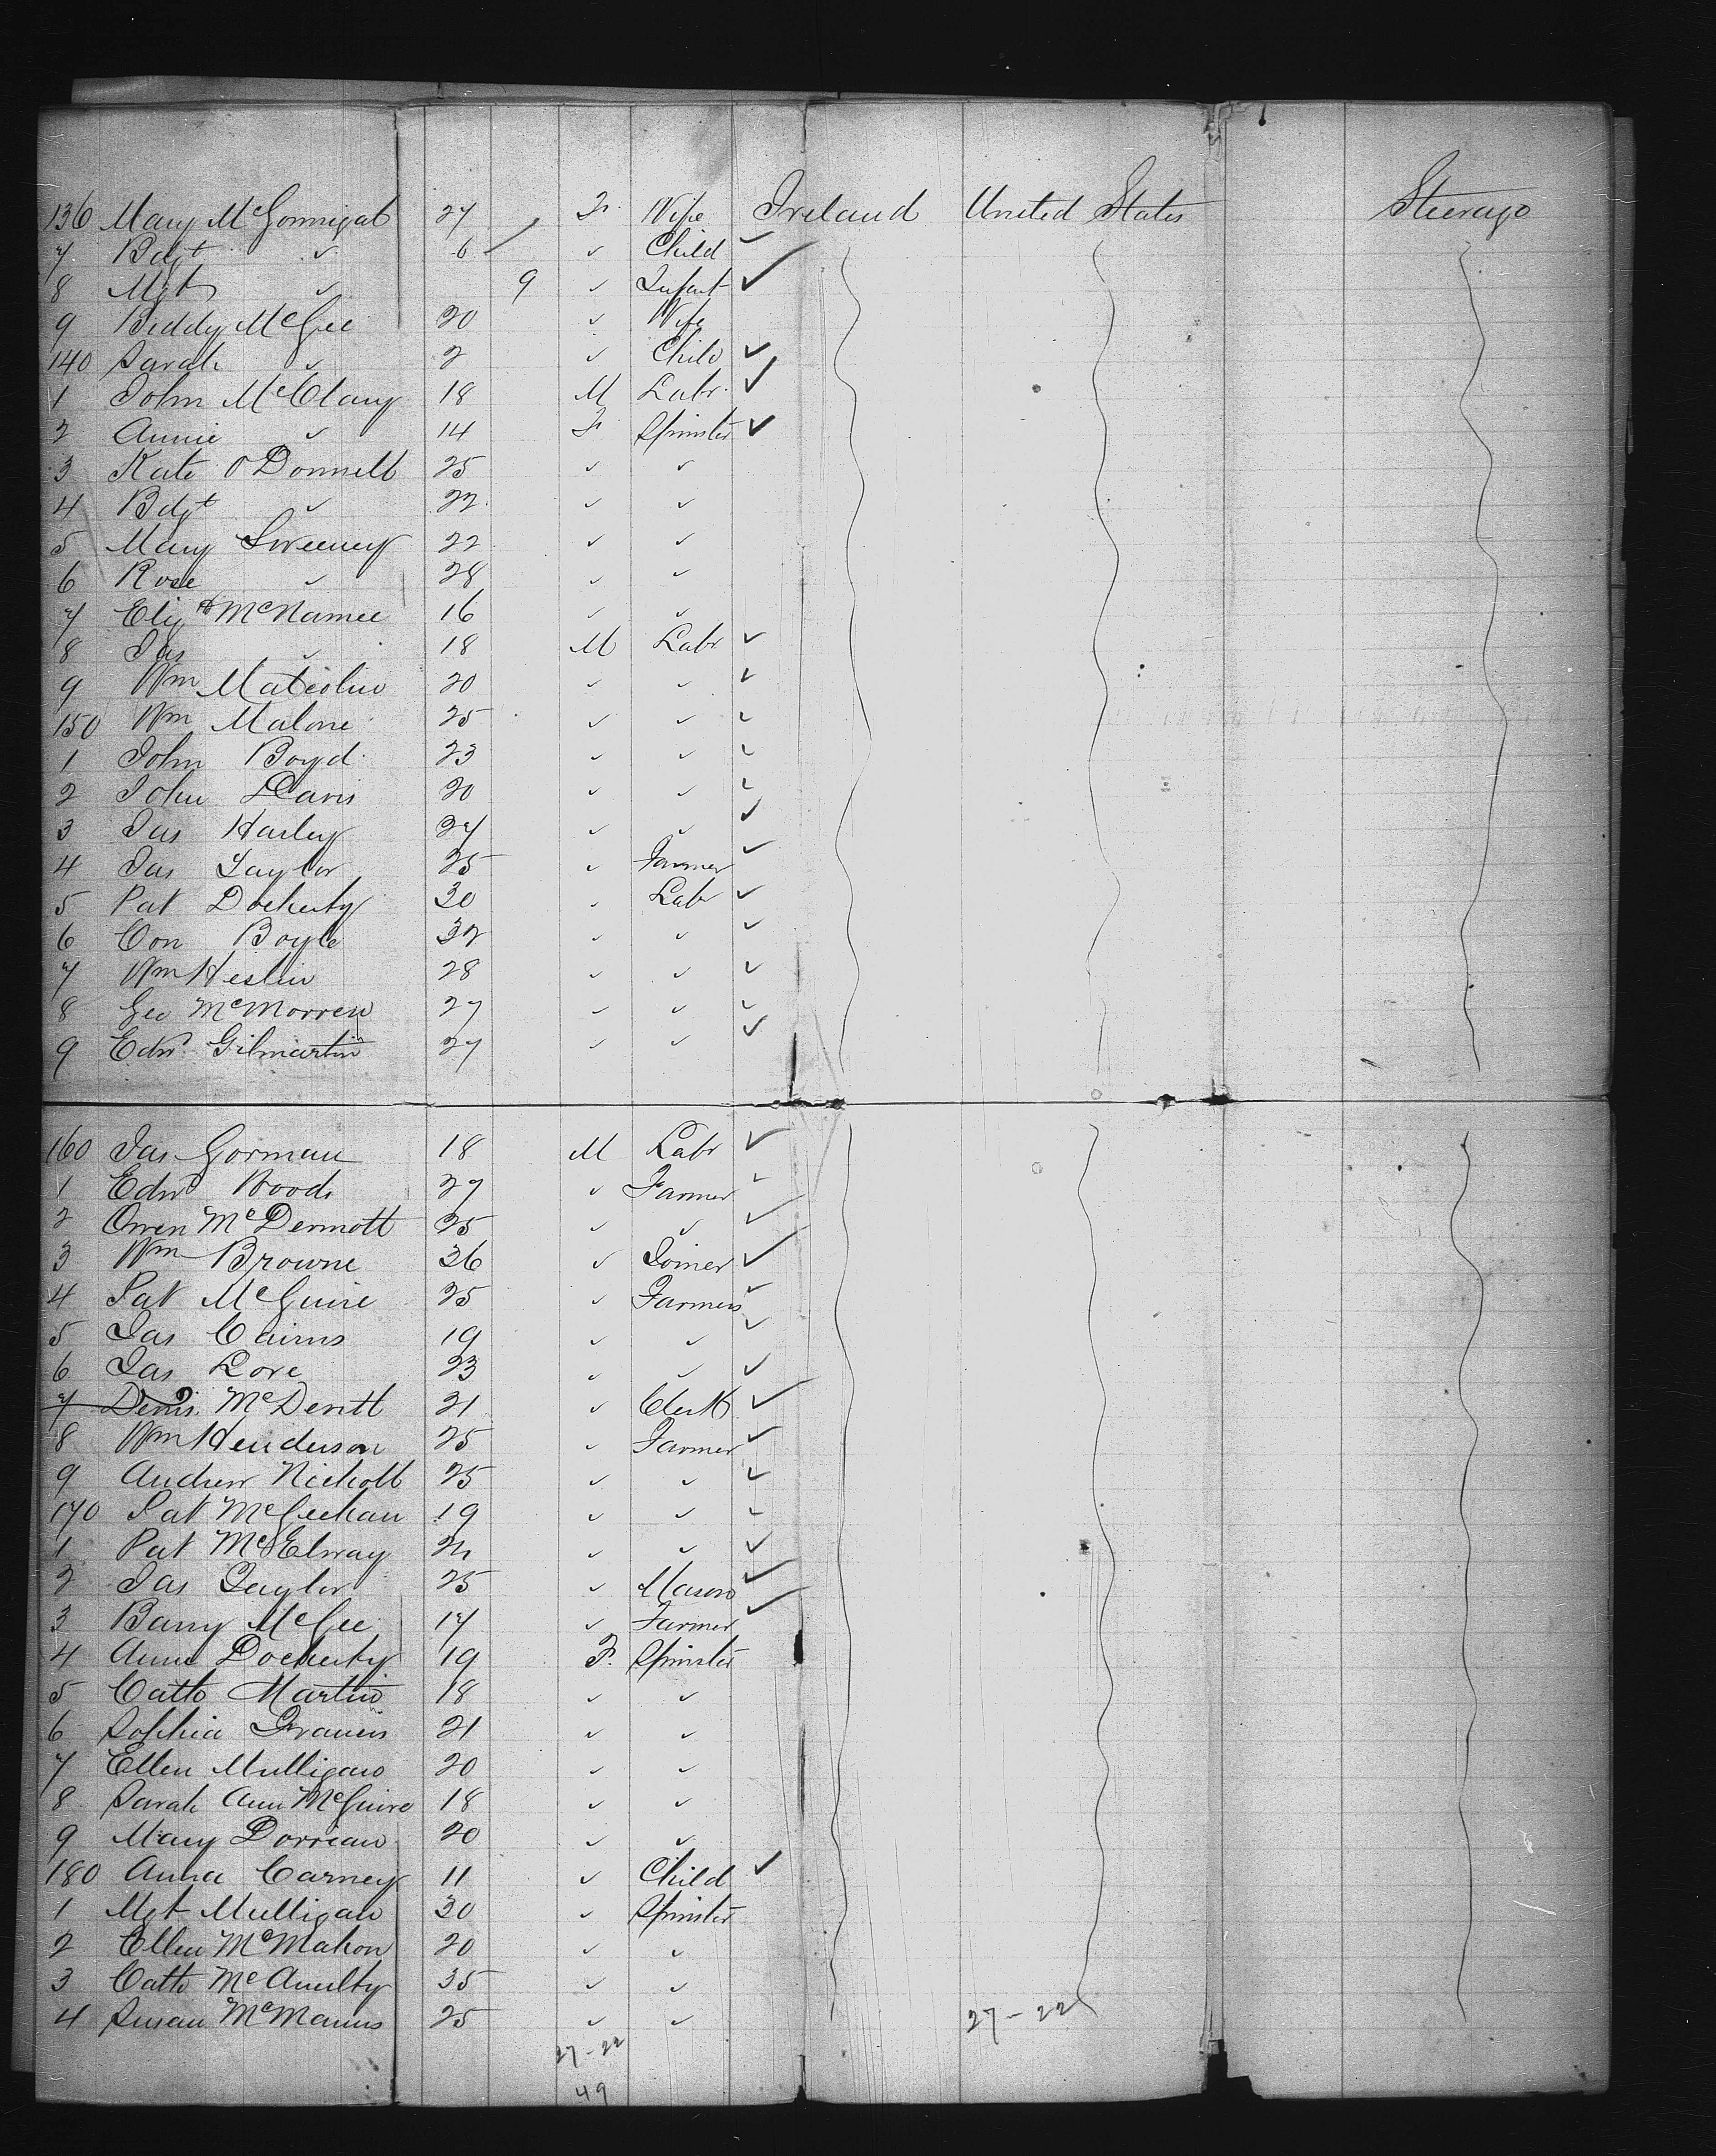 136 Mary McGonnigal 27 F. Wife Ireland United States Steerage
7 Bdgt " 6 " Child
8 Mgt " 9 " Infant
9 Biddy McGee 20 " Wife
140 Sarah " 2 " Child
1 John McClary 18 M Labr.
2 Annie " 14 F. Spinster
3 Kate O'Donnell 25 " "
4 Bdgt " 22 " "
5 Mary Sweeney 22 " "
6 Rose " 28 " "
7 Elizth McNamee 16 " "
8 Jas " 18 M Labr
9 Wm 20 " "
150 Wm Malone 25 " "
1 John Boyd 23 " "
2 John Davis 20 " "
3 Jas Harley 27 " "
4 Jas Taylor 25 " Farmer
5 Pat Docherty 30 " Labr
6 Con Boyle 32 " "
7 Wm Heslin 28 " "
8 Geo McMorren 27 " "
9 Edwd Gilmartin 27 " "
160 Jas Gorman 18 M Labr
1 Edwd Woods 27 " Farmer
2 Owen McDermott 25 " "
3 Wm Browne 36 " Joiner
4 Pat McGuire 25 " Farmer
5 Jas Cairns 19 " "
6 Jas Love 23 " "
7 Denis McDevitt 21 " Clerk
8 Wm Henderson 25 " Farmer
9 Andrew Nicholl 25 " "
170 Pat McGeehan 19 " "
1 Pat McElway " "
2 Jas Taylor 25 " Mason
3 Barry McGee 17 " Farmer
4 Anne Docherty 19 F. Spinster
5 Cath Martin 18 " "
6 Sophia 21 " "
7 Ellen Mulligan 20 " "
8 Sarah Ann McGuire 18 " "
9 Mary Dorrian 20 " "
180 Anna Carney 11 " Child
1 Mgt Mulligan 30 " Spinster
2 Ellen McMahon 20 " "
3 Cath McAnulty 35 " "
4 Susan McManus 25 " "
27-22 27-22
49